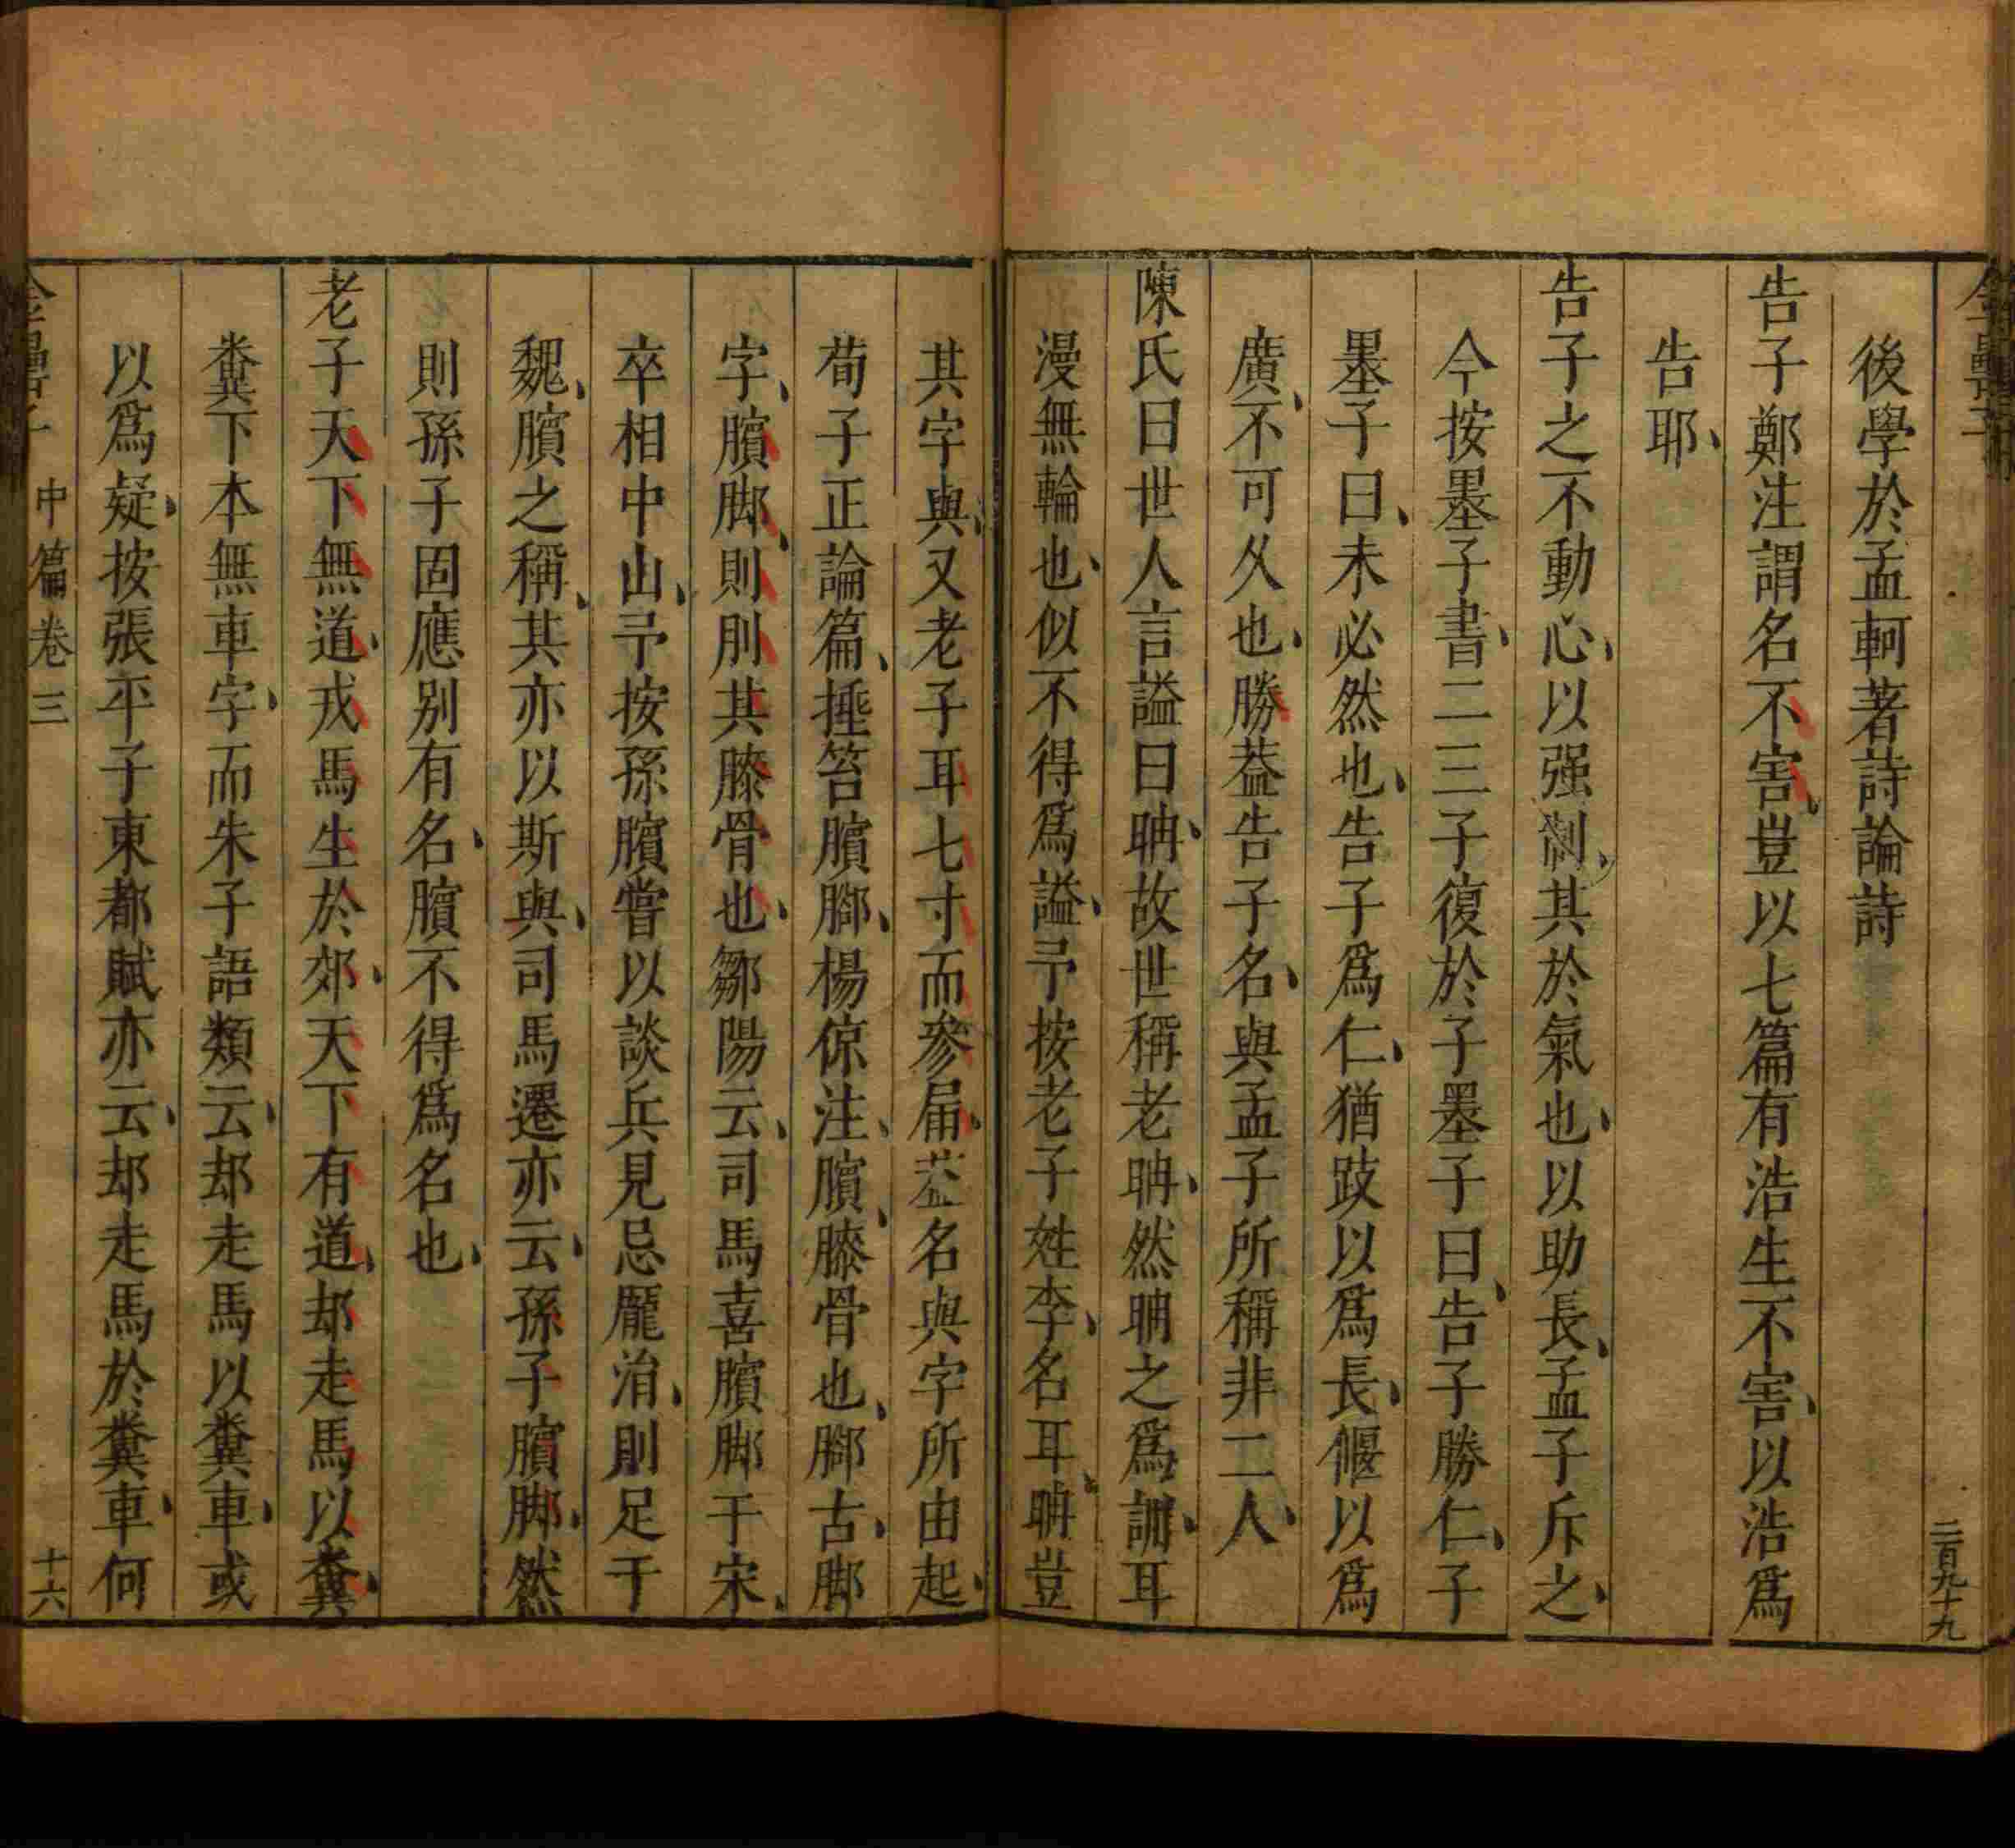 後學於孟軻著詩論詩
告子鄭注謂名不害豈以七篇有浩生不害以浩爲
告耶
告子之不動心以强制其於氣也以助長孟子斥之
今按墨子書二三子復於子墨子曰告子勝仁子
墨子曰未必然也告子爲仁猶跂以爲長偃以爲
廣不可久也勝葢告子名與孟子所稱非二人
陳氏曰世人言謚曰聃故世稱老聃然聃之爲訓耳
漫無輪也似不得爲謚予按老子姓李名耳聃豈
其字與又老子耳七寸而參屚葢名與字所由起
荀子正論篇捶笞臏腳楊倞注臏膝骨也腳古脚
字臏脚則刖其膝骨也鄒陽云司馬喜臏脚于宋
卒相中山予按孫臏嘗以談兵見忌龐涓則足于
魏臏之稱其亦以斯與司馬遷亦云孫子臏脚然
則孫子固應別有名臏不得爲名也
老子天下無道戎馬生於郊天下有道却走馬以糞
糞下本無車字而朱子語類云却走馬以糞車或
以爲疑按張平子東都賦亦云却走馬於糞車何
中篇卷三
十六
二百九十九